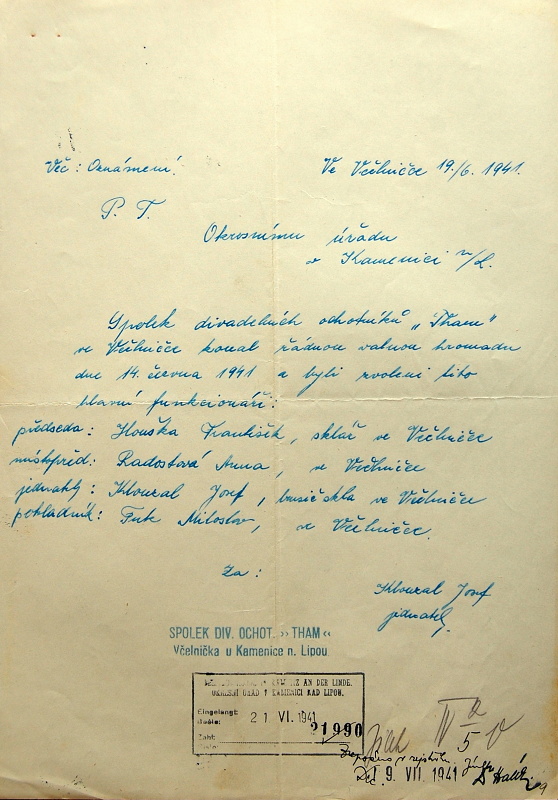 Věc: Oznámení.
Ve Včelničce 19./6. 1941.
P. T.
Okresnímu úřadu
v Kamenici n/L.
Spolek divadelních ochotníků „Tham"
ve Včelničce konal řádnou valnou hromadu
dne 14. června 1941 a byli zvoleni tito
hlavní funkcionáři:
předseda: Houška František, sklář ve Včelničce
místopřed: Radostová Anna, ve Včelničce
jednatel: Klouzal Josef, brusič skla ve Včelničce
pokladník: Miloslav, ve Včelničce.
Za:
Klouzal Josef
jednatel,
SPOLEK DIV. OCHOT. „THAM"
Včelnička u Kamenice n. Lipou
KAMENITZ AN DER LINDE.
OKRESNÍ ÚŘAD V KAMENICI NAD LIPOU.
Eingelangt:
Došlo: 21 VI. 1941
Zahl: 21990
IV a/5
Zapsáno v rejstříku
19. VII. 1941